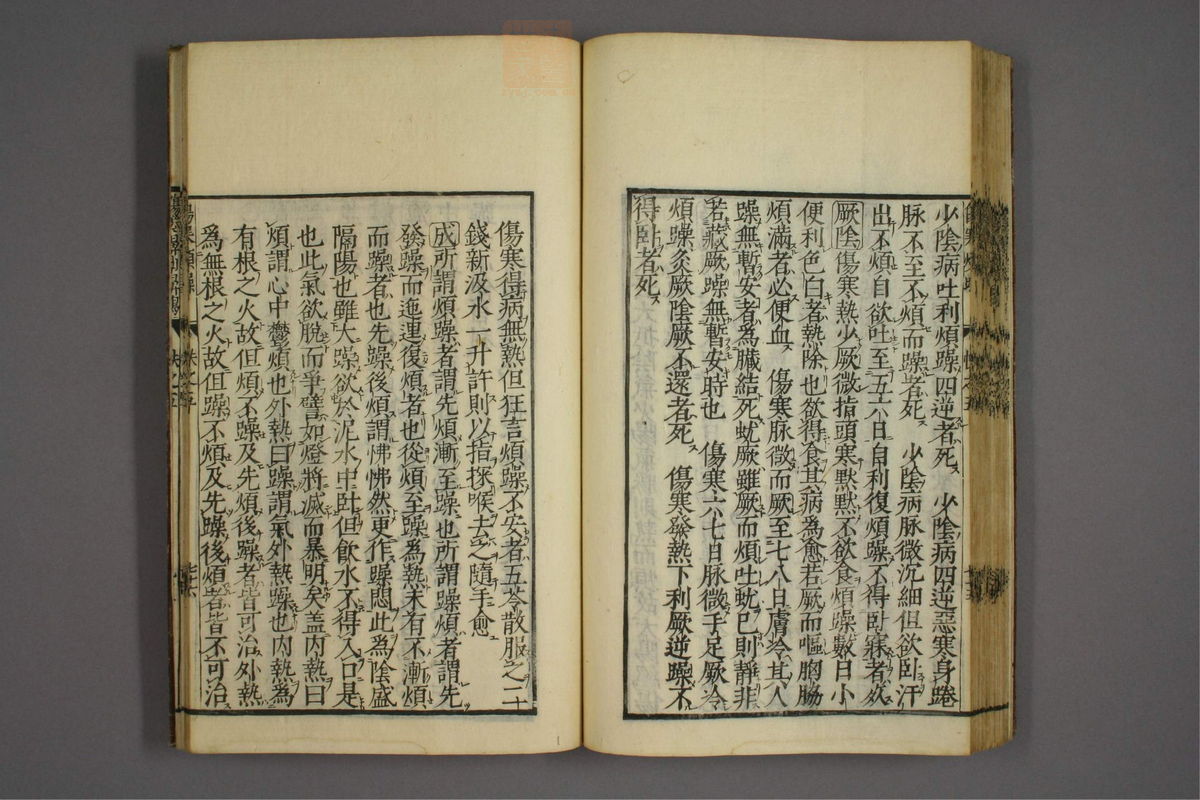 少陰病吐利煩躁四逆者死 少陰病四逆惡寒身踡
脉不至不煩而躁者死 少陰病脉微沉細但欲臥汗
出不煩自欲吐至五六日自利復煩躁不得臥寐者死
厥陰傷寒熱少厥微指頭寒默默不欲食煩躁數日小
便利色白者熱除也欲得食其病為愈若厥而嘔胸脇
煩滿者必便血 傷寒脉微而厥至七八日膚冷其人
躁無暫安者為臟結死蚘厥雖厥而煩吐蚘已則靜非
若藏厥躁無暫安時也 傷寒六七日脉微手足厥冷
煩躁灸厥陰厥不還者死 傷寒發熱下利厥逆躁不
得臥者死
傷寒得病無熱但狂言煩躁不安者五苓散服之二
錢新汲水一升許則以指探喉去之隨手愈
成所謂煩躁者謂先煩漸至躁也所謂躁煩者謂先
發躁而迤逦復煩者也從煩至躁為熱未有不漸煩
而躁者也先躁後煩謂怫怫然更作躁悶此為陰盛
隔陽也雖大躁欲於泥水中臥但飲水不得入口是
也此氣欲脫而爭譬如燈將滅而暴明矣盖內熱曰
煩謂心中鬱煩也外熱曰躁謂氣外熱躁也內熱為
有根之火故但煩不躁及先煩後躁者皆可治外熱
為無根之火故但躁不煩及先躁後煩者皆不可治